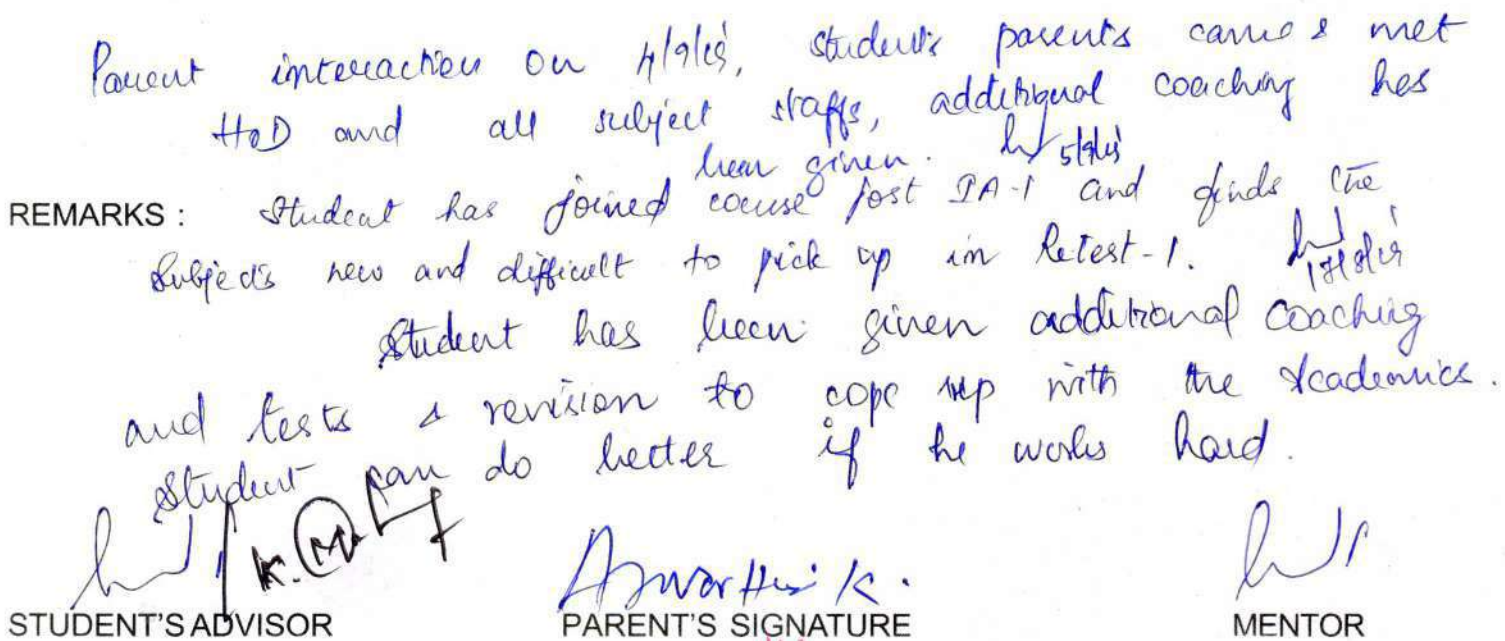 Parent interaction on 4/9/19, students parents came & met
HoD and all subject staffs, additional coaching has
been given. 5/9/19
REMARKS : Student has joined course post IA-1 and finds the
subjects new and difficult to pick up in Retest-1.
Student has been given additional coaching
and tests & revision to cope up with the academics.
Student can do better if he works hard.
STUDENT'S ADVISOR PARENT'S SIGNATURE MENTOR